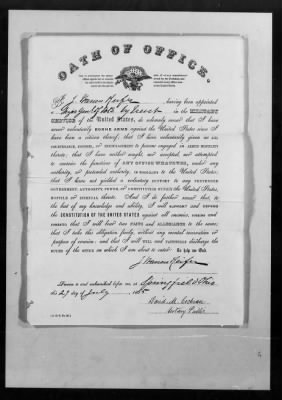 OATH OF OFFICE.
I, J. Warren Keifer, having been appointed
a Major Genl of Vols. by Brevet in the MILITARY
SERVICE of the United States, do solemnly swear that I have
never voluntarily BORNE ARMS against the United States since I
have been a citizen thereof; that I have voluntarily given no AID,
COUNTENANCE, COUNSEL, or ENCOURAGEMENT to persons engaged in ARMED HOSTILITY
thereto; that I have neither sought, nor accepted, nor attempted
to exercise the functions of ANY OFFICE WHATEVER, under any
authority, or pretended authority, in HOSTILITY to the United States;
that I have not yielded a voluntary support to any PRETENDED
GOVERNMENT, AUTHORITY, POWER, or CONSTITUTION WITHIN the United States,
HOSTILE or INIMICAL thereto. And I do further swear that, to
the best of my knowledge and ability, I will SUPPORT and DEFEND
THE CONSTITUTION OF THE UNITED STATES against all enemies, FOREIGN and
DOMESTIC; that I will bear true FAITH and ALLEGIANCE to the same;
that I take this obligation freely, without any mental reservation or
purpose of evasion; and that I will WELL and FAITHFULLY discharge the
DUTIES of the OFFICE on which I am about to enter: So help me God.
J. Warren Keifer
Sworn to and subscribed before me, at Springfield Ohio
this 27 day of July, 1865
David M. Cochran
Notary Public